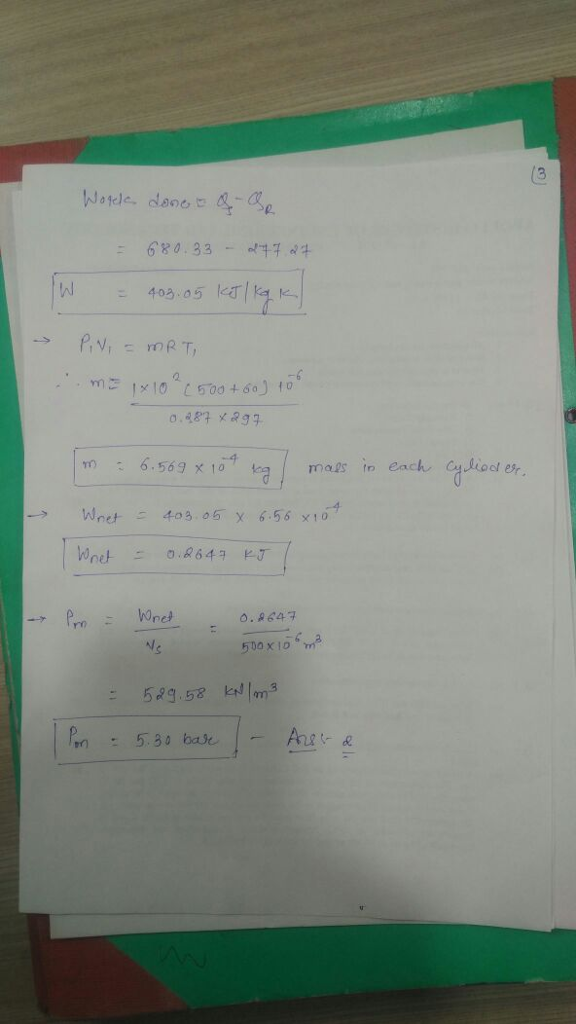 (3
Work done = Qs - QR
= 680.33 - 277.27
W = 403.05 KJ/Kg K
→ P1V1 = mRT1
∴ m = 1×10² (500+60) 10⁻⁶
0.287 × 297
m = 6.569 × 10⁻⁴ kg mass in each cylinder.
→ Wnet = 403.05 × 6.56 × 10⁻⁴
Wnet = 0.2647 KJ
→ Pm = Wnet / Vs = 0.2647 / 500×10⁻⁶ m³
= 529.58 KN/m³
Pm = 5.30 bar - Ans:- 2